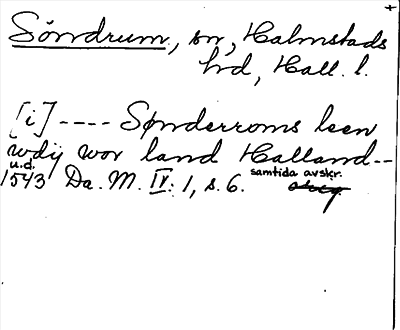 Söndrum, sn, Halmstads
hd, Hall. l.
[i] ---- Sønderroms leen
wdij wor land Halland --
u.d.
1543 Da. M. IV: 1, s. 6. samtida avskr.